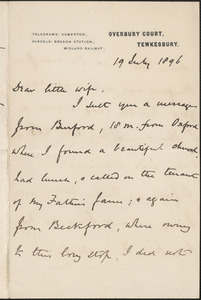 TELEGRAMS: KEMERTON,
PARCELS: BREDON STATION,
MIDLAND RAILWAY.
OVERBURY COURT,
TEWKESBURY.
19 July 1896
Dear little wife,
I sent you a message
from Burford, 18 m. from Oxford
where I found a beautiful church,
had lunch, & called on the tenant
of my Father's farm; & again
from Beckford, where owing
to this long stop, I did not